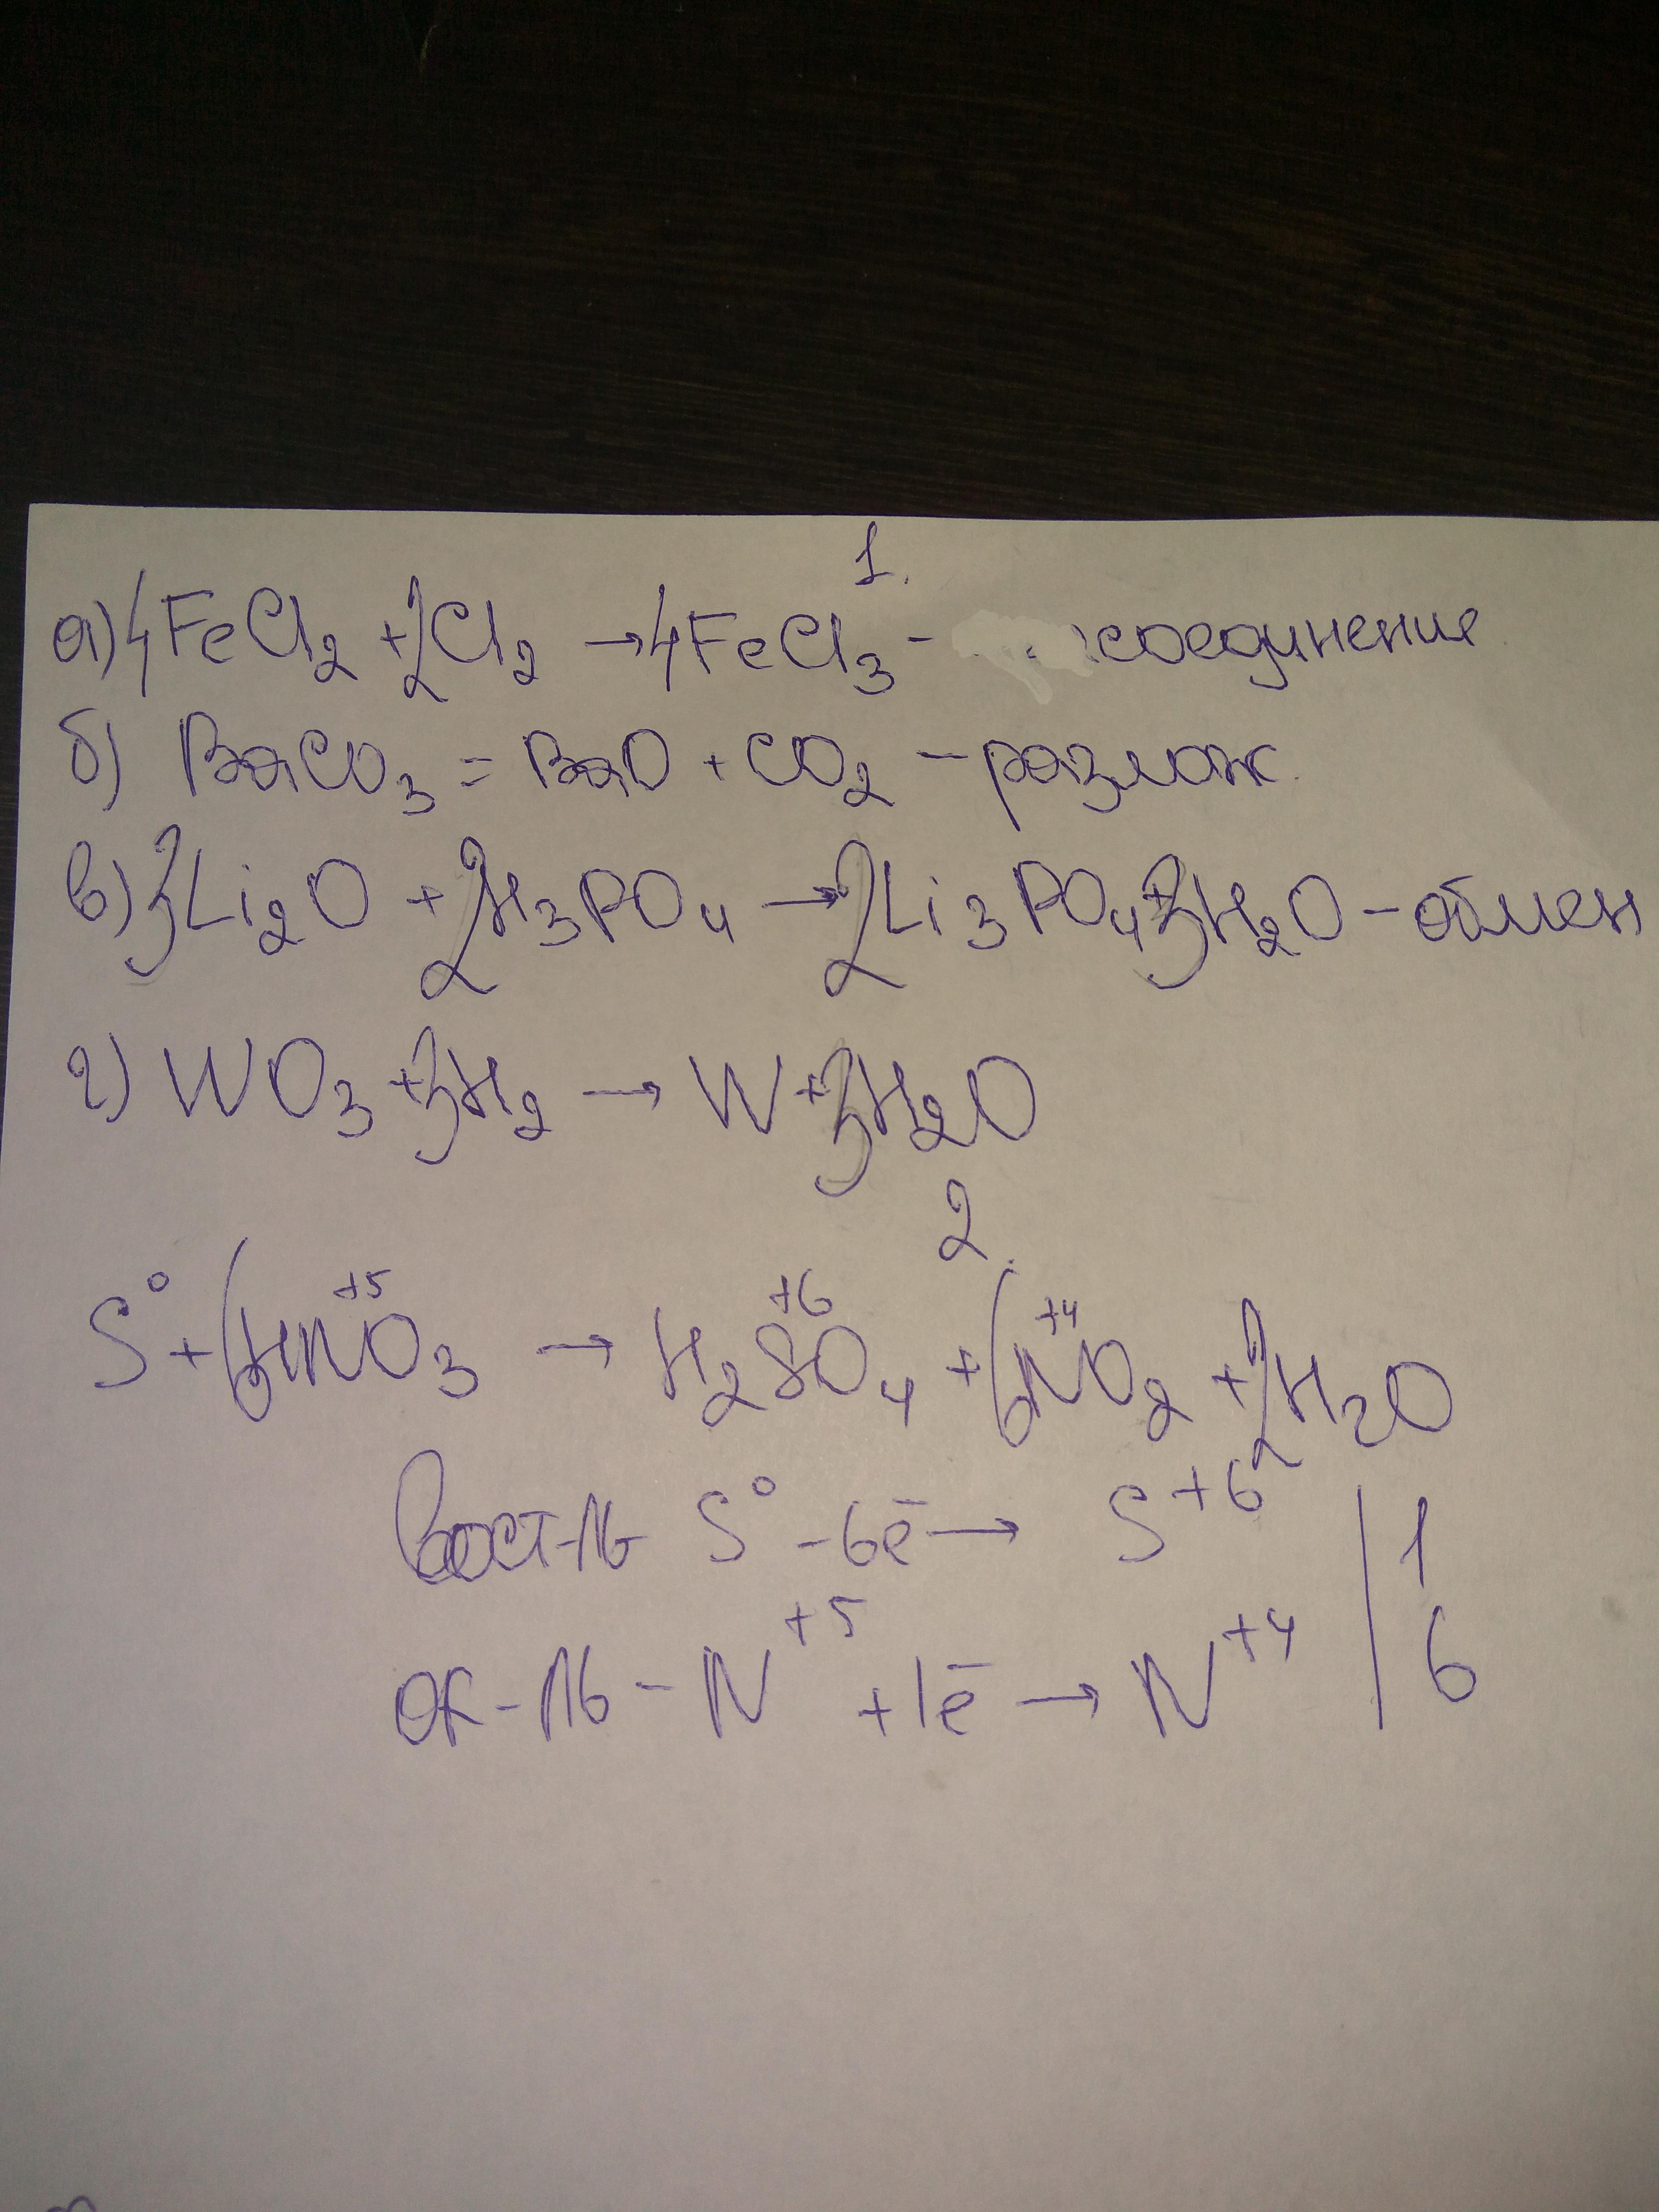 1.
а) 4FeCl₂ + 2Cl₂ → 4FeCl₃ - соединение
б) BaCO₃ = BaO + CO₂ - разлож.
в) 3Li₂O + 2H₃PO₄ → 2Li₃PO₄ + 3H₂O - обмен
г) WO₃ + 3H₂ → W + 3H₂O
2.
S⁰ + 6HN⁺⁵O₃ → H₂S⁺⁶O₄ + 6N⁺⁴O₂ + 2H₂O
Вост-ль S⁰ - 6ē → S⁺⁶ | 1
ок-ль - N⁺⁵ + 1ē → N⁺⁴ | 6